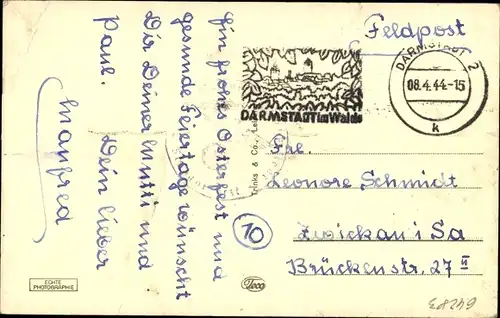 Ein frohes Osterfest und
gesunde Feiertage wünscht
Dir Deiner Mutti und
Paul. Dein lieber
Manfred
Feldpost
DARMSTADT 2
08.4.44-15
k
DARMSTADT im Walde
Trinks & Co., Le
Frl.
Leonore Schmidt
Zwickau i Sa
Brückenstr. 27 II
10
ECHTE
PHOTOGRAPHIE
Teco